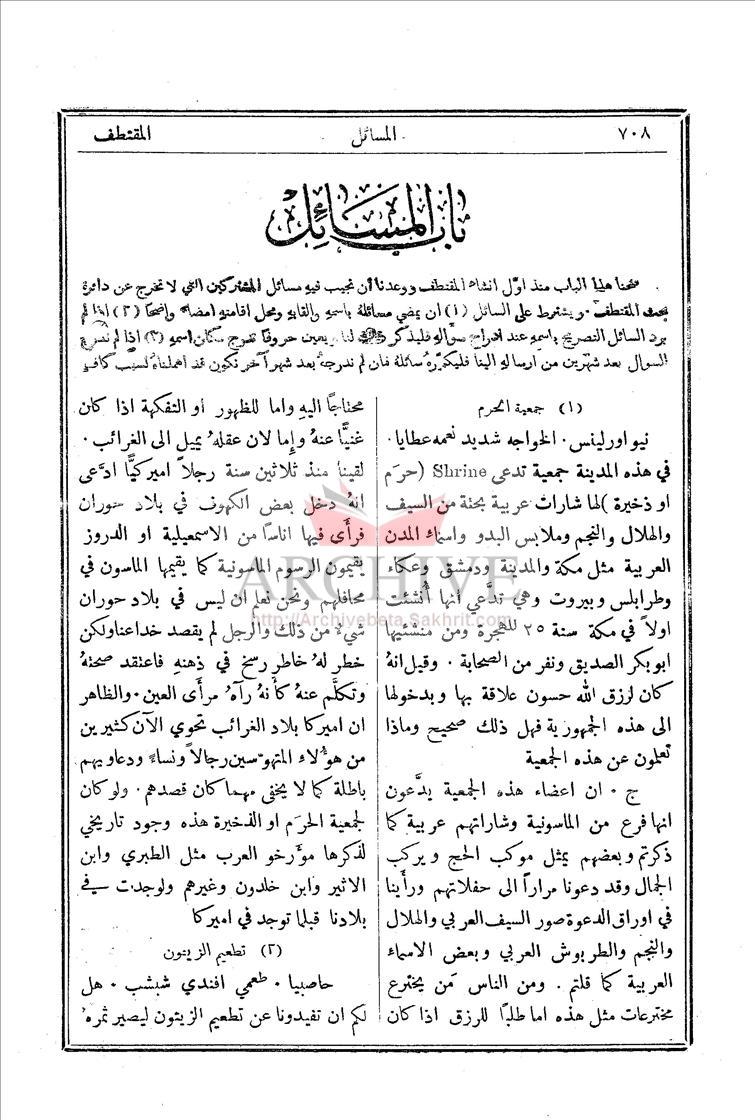 ٧٠٨
المسائل
المقتطف
باب المسائل
فتحنا هذا الباب منذ اول انشاء المقتطف ووعدنا ان نجيب فيه مسائل المشتركين التي لا تخرج عن دائرة
بحث المقتطف. ويشترط على السائل (١) ان يمضي مسائله باسمه والقابه ومحل اقامته امضاء واضحا (٢) اذا لم
يرد السائل التصريح باسمه عند ادراج سؤاله فليذكر ذلك لنا ويعين حروفا تدرج مكان اسمه (٣) اذا لم ندرج
السوال بعد شهرين من ارساله الينا فليكرره سائله فان لم ندرجه بعد شهر آخر نكون قد اهملناه لسبب كاف
(١) جمعية الحرم
نيو اورلينس. الخواجه شديد نعمه عطايا.
في هذه المدينة جمعية تدعى Shrine (حرَم
او ذخيرة) لها شارات عربية بحتة من السيف
والهلال والنجم وملابس البدو واسماء المدن
العربية مثل مكة والمدينة ودمشق وعكاء
وطرابلس وبيروت وهي تدَّعي انها أُنشئت
اولاً في مكة سنة ٢٥ للهجرة ومن منشئيها
ابو بكر الصديق ونفر من الصحابة. وقيل انهُ
كان لرزق الله حسون علاقة بها وبدخولها
الى هذه الجمهورية فهل ذلك صحيح وماذا
تعلمون عن هذه الجمعية
ج. ان اعضاء هذه الجمعية يدَّعون
انها فرع من الماسونية وشاراتهم عربية كما
ذكرتم وبعضهم يمثل موكب الحج ويركب
الجمال وقد دعونا مراراً الى حفلاتهم ورأينا
في اوراق الدعوة صور السيف العربي والهلال
والنجم والطربوش العربي وبعض الاسماء
العربية كما قلتم. ومن الناس مَن يخترع
مخترعات مثل هذه اما طلبًا للرزق اذا كان
محتاجًا اليهِ واما للظهور او التفكهة اذا كان
غنيًّا عنهُ وإما لان عقلهُ يميل الى الغرائب.
لقينا منذ ثلاثين سنة رجلاً اميركيًّا ادَّعى
انهُ دخل بعض الكهوف في بلاد حوران
فرأَى فيها اناسًا من الاسمعيلية او الدروز
يقيمون الرسوم الماسونية كما يقيمها الماسون في
محافلهم ونحن نعلم ان ليس في بلاد حوران
شيءٌ من ذلك والرجل لم يقصد خداعنا ولكن
خطر لهُ خاطر رسخ في ذهنهِ فاعتقد صحتهُ
وتكلَّم عنهُ كأنهُ رآهُ مرأى العين. والظاهر
ان اميركا بلاد الغرائب تحوي الآن كثيرين
من هؤلاء المتهوّسين رجالاً ونساءً ودعاويهم
باطلة كما لا يخفى مهما كان قصدهم. ولو كان
لجمعية الحرَم او الذخيرة هذه وجود تاريخي
لذكرها مؤرخو العرب مثل الطبري وابن
الاثير وابن خلدون وغيرهم ولوجدت في
بلادنا قبلما توجد في اميركا
(٢) تطعيم الزيتون
حاصبيا. طعمي افندي شبشب. هل
لكم ان تفيدونا عن تطعيم الزيتون ليصير ثمرهُ
ARCHIVE
http://Archivebeta.Sakhrit.com